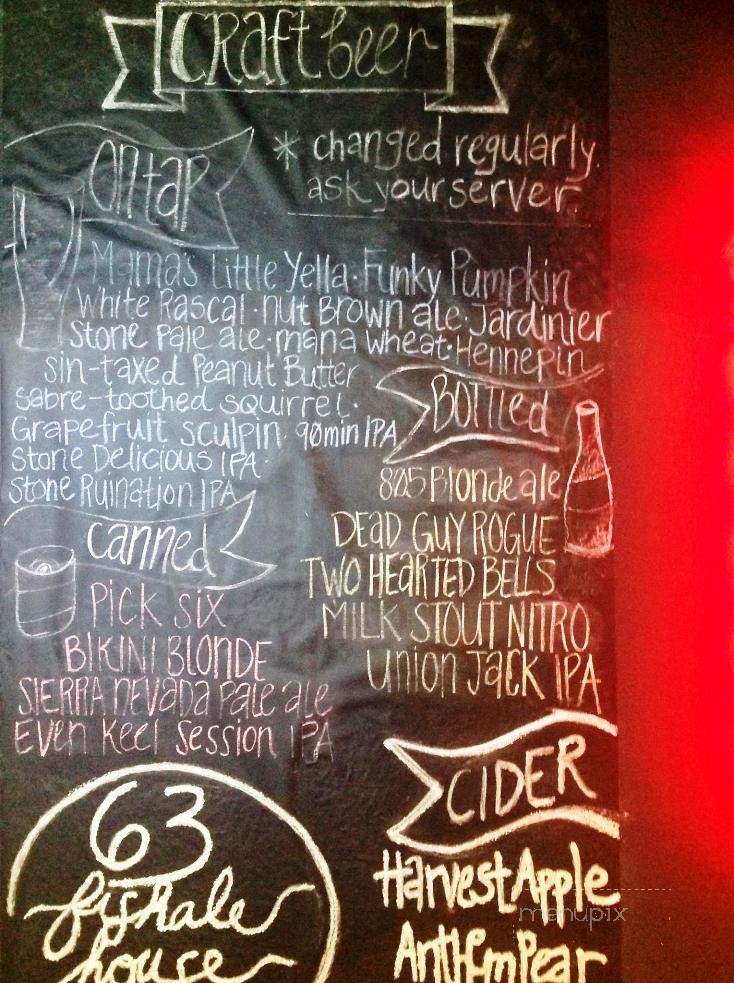 Craft beer
on tap
* changed regularly.
ask your server.
Mama's Little Yella · Funky Pumpkin
White Rascal · nut Brown ale · Jardinier
Stone Pale ale · mana wheat · Hennepin
sin-taxed Peanut Butter
sabre-toothed squirrel ·
Grapefruit sculpin · 90min IPA
Stone Delicious IPA ·
Stone Ruination IPA
BOTTled
805 Blonde ale
DEAD GUY ROGUE
TWO HEARTED BELLS
MILK STOUT NITRO
Union Jack IPA
canned
PICK SIX
BIKINI BLONDE
SIERRA nevada Pale ale
Even Keel Session IPA
CIDER
Harvest Apple
AnthEm Pear
63
fishale
house
manupix